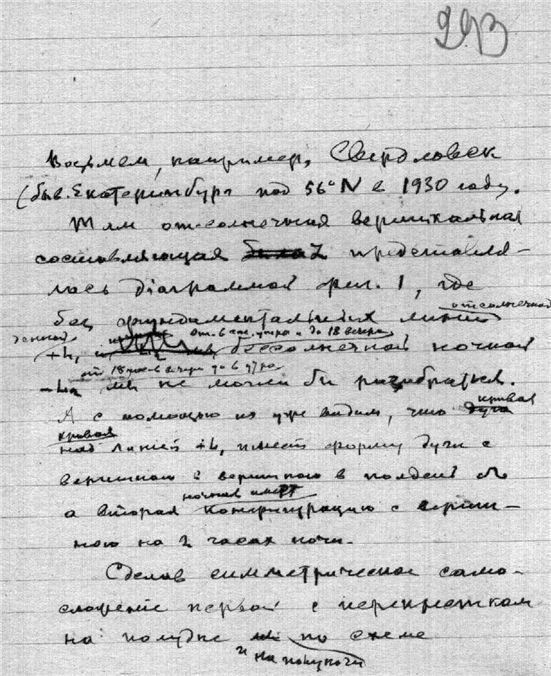 293
Возьмем, например, Свердловск
(быв. Екатеринбург под 56° N в 1930 году.
Там отсолнечная вертикальная
составляющая представля-
лась диаграммой фиг. 1, где
без фундаментальных линий
отсолнечной
дневной
от 6 час. утра и до 18 вечера
+h, бессолнечной ночной
от 18 час вечера до 6 утра
мы не могли бы разобраться.
А с помощью их уже видим, что
кривая
кривая
над линией +h, имеет форму дуги с
вершиною в полдень
ночная имеет
а вторая конфигурацию с верши-
ною на 2 часах ночи.
Сделав симметрическое само-
сложение первой с перекрестком
на полудне по схеме
и на полуночи